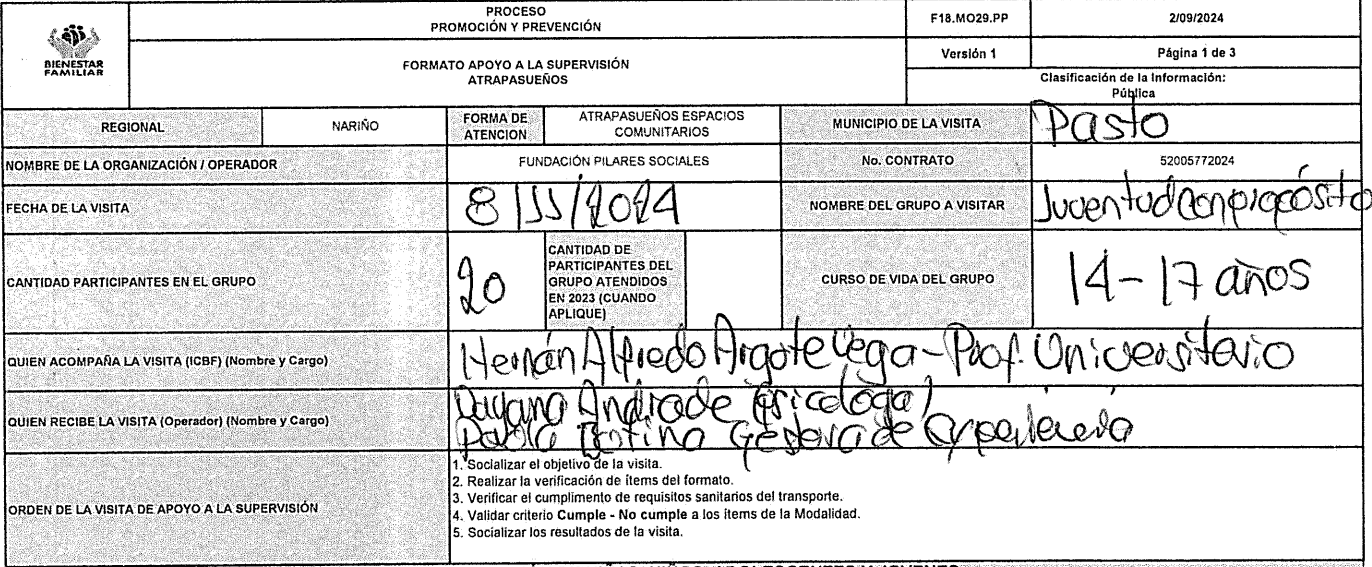 PROCESO
PROMOCIÓN Y PREVENCIÓN
F18.MO29.PP
2/09/2024
BIENESTAR
FAMILIAR
FORMATO APOYO A LA SUPERVISIÓN
ATRAPASUEÑOS
Versión 1
Página 1 de 3
Clasificación de la Información:
Pública
REGIONAL
NARIÑO
FORMA DE
ATENCION
ATRAPASUEÑOS ESPACIOS
COMUNITARIOS
MUNICIPIO DE LA VISITA
Pasto
NOMBRE DE LA ORGANIZACIÓN / OPERADOR
FUNDACIÓN PILARES SOCIALES
No. CONTRATO
52005772024
FECHA DE LA VISITA
8/11/2024
NOMBRE DEL GRUPO A VISITAR
Juventud con propósito
CANTIDAD PARTICIPANTES EN EL GRUPO
20
CANTIDAD DE
PARTICIPANTES DEL
GRUPO ATENDIDOS
EN 2023 (CUANDO
APLIQUE)
CURSO DE VIDA DEL GRUPO
14-17 años
QUIEN ACOMPAÑA LA VISITA (ICBF) (Nombre y Cargo)
Hernán Alfredo Argote Vega - Prof. Universitario
QUIEN RECIBE LA VISITA (Operador) (Nombre y Cargo)
Dayana Andrade (Psicologa)
Paola Botina Gestora de Experiencia
ORDEN DE LA VISITA DE APOYO A LA SUPERVISIÓN
1. Socializar el objetivo de la visita.
2. Realizar la verificación de ítems del formato.
3. Verificar el cumplimento de requisitos sanitarios del transporte.
4. Validar criterio Cumple - No cumple a los ítems de la Modalidad.
5. Socializar los resultados de la visita.